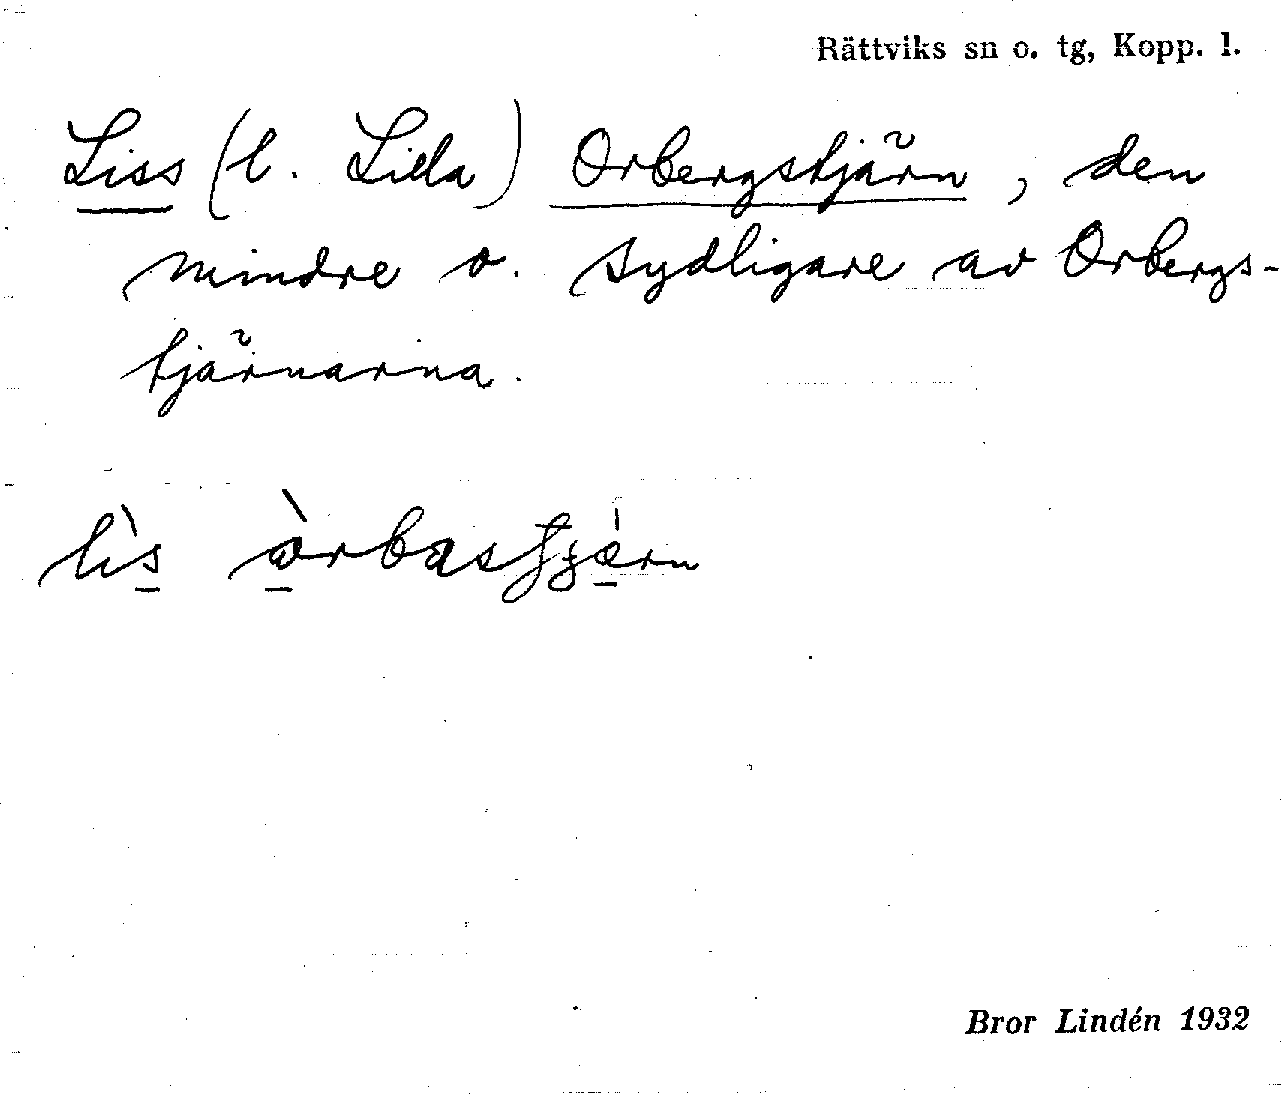 Rättviks sn o. tg, Kopp. l.
Liss (l. Lilla) Orbergstjärn, den
mindre o. sydligare av Orbergs-
tjärnarna.
lìs
Bror Lindén 1932